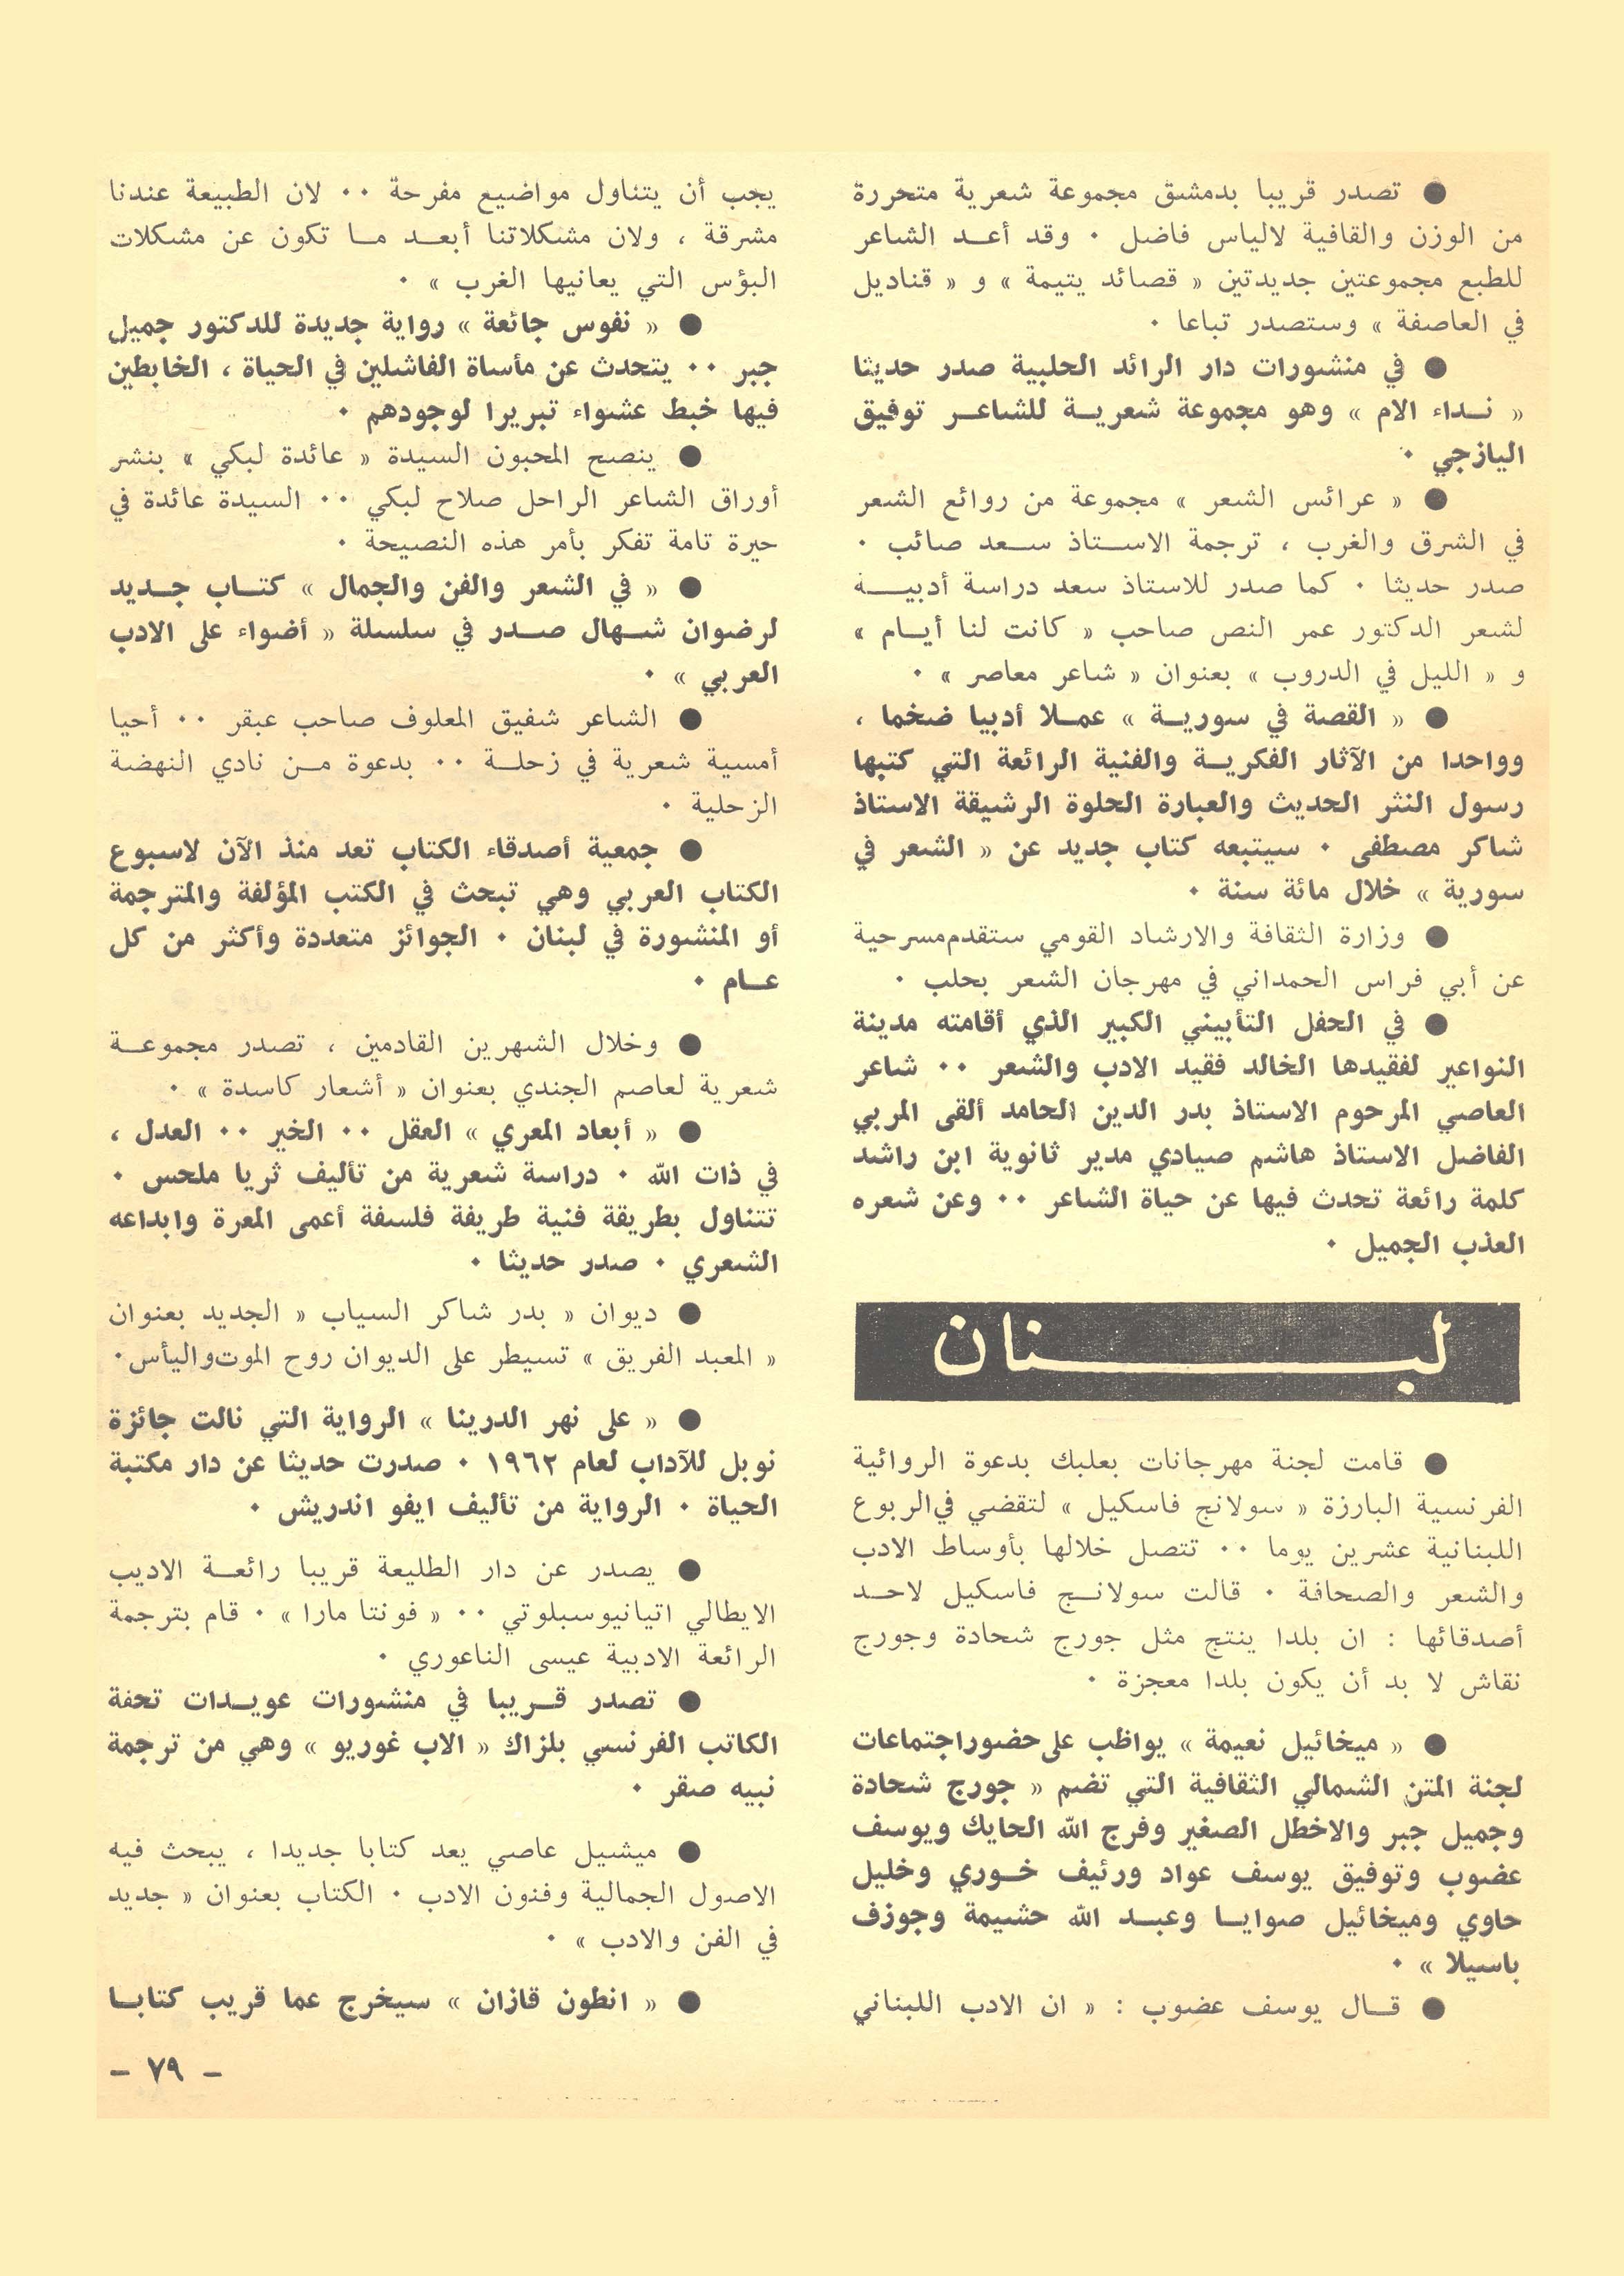 ● تصدر قريبا بدمشق مجموعة شعرية متحررة
من الوزن والقافية لالياس فاضل ٠ وقد أعد الشاعر
للطبع مجموعتين جديدتين « قصائد يتيمة » و « قناديل
في العاصفة » وستصدر تباعا ٠
● في منشورات دار الرائد الحلبية صدر حديثا
« نداء الام » وهو مجموعة شعرية للشاعر توفيق
اليازجي ٠
● « عرائس الشعر » مجموعة من روائع الشعر
في الشرق والغرب ، ترجمة الاستاذ سعد صائب ٠
صدر حديثا ٠ كما صدر للاستاذ سعد دراسة أدبية
لشعر الدكتور عمر النص صاحب « كانت لنا أيام »
و « الليل في الدروب » بعنوان « شاعر معاصر » ٠
● « القصة في سورية » عملا أدبيا ضخما ،
وواحدا من الآثار الفكرية والفنية الرائعة التي كتبها
رسول النثر الحديث والعبارة الحلوة الرشيقة الاستاذ
شاكر مصطفى ٠ سيتبعه كتاب جديد عن « الشعر في
سورية » خلال مائة سنة ٠
● وزارة الثقافة والارشاد القومي ستقدم مسرحية
عن أبي فراس الحمداني في مهرجان الشعر بحلب ٠
● في الحفل التأبيني الكبير الذي أقامته مدينة
النواعير لفقيدها الخالد فقيد الادب والشعر ٠٠ شاعر
العاصي المرحوم الاستاذ بدر الدين الحامد ألقى المربي
الفاضل الاستاذ هاشم صيادي مدير ثانوية ابن راشد
كلمة رائعة تحدث فيها عن حياة الشاعر ٠٠ وعن شعره
العذب الجميل ٠
لبنان
● قامت لجنة مهرجانات بعلبك بدعوة الروائية
الفرنسية البارزة « سولانج فاسكيل » لتقضي في الربوع
اللبنانية عشرين يوما ٠٠ تتصل خلالها بأوساط الادب
والشعر والصحافة ٠ قالت سولانج فاسكيل لاحد
أصدقائها : ان بلدا ينتج مثل جورج شحادة وجورج
نقاش لا بد أن يكون بلدا معجزة ٠
● « ميخائيل نعيمة » يواظب على حضور اجتماعات
لجنة المتن الشمالي الثقافية التي تضم « جورج شحادة
وجميل جبر والاخطل الصغير وفرج الله الحايك ويوسف
عضوب وتوفيق يوسف عواد ورئيف خوري وخليل
حاوي وميخائيل صوايا وعبد الله حشيمة وجوزف
باسيلا » ٠
● قال يوسف عضوب : « ان الادب اللبناني
يجب أن يتناول مواضيع مفرحة ٠٠ لان الطبيعة عندنا
مشرقة ، ولان مشكلاتنا أبعد ما تكون عن مشكلات
البؤس التي يعانيها الغرب » ٠
● « نفوس جائعة » رواية جديدة للدكتور جميل
جبر ٠٠ يتحدث عن مأساة الفاشلين في الحياة ، الخابطين
فيها خبط عشواء تبريرا لوجودهم ٠
● ينصح المحبون السيدة « عائدة لبكي » بنشر
أوراق الشاعر الراحل صلاح لبكي ٠٠ السيدة عائدة في
حيرة تامة تفكر بأمر هذه النصيحة ٠
● « في الشعر والفن والجمال » كتاب جديد
لرضوان شهال صدر في سلسلة « أضواء على الادب
العربي » ٠
● الشاعر شفيق المعلوف صاحب عبقر ٠٠ أحيا
أمسية شعرية في زحلة ٠٠ بدعوة من نادي النهضة
الزحلية ٠
● جمعية أصدقاء الكتاب تعد منذ الآن لاسبوع
الكتاب العربي وهي تبحث في الكتب المؤلفة والمترجمة
أو المنشورة في لبنان ٠ الجوائز متعددة وأكثر من كل
عام ٠
● وخلال الشهرين القادمين ، تصدر مجموعة
شعرية لعاصم الجندي بعنوان « أشعار كاسدة » ٠
● « أبعاد المعري » العقل ٠٠ الخير ٠٠ العدل ،
في ذات الله ٠ دراسة شعرية من تأليف ثريا ملحس ٠
تتناول بطريقة فنية طريفة فلسفة أعمى المعرة وابداعه
الشعري ٠ صدر حديثا ٠
● ديوان « بدر شاكر السياب » الجديد بعنوان
« المعبد الفريق » تسيطر على الديوان روح الموت واليأس ٠
● « على نهر الدرينا » الرواية التي نالت جائزة
نوبل للآداب لعام ١٩٦٢ ٠ صدرت حديثا عن دار مكتبة
الحياة ٠ الرواية من تأليف ايفو اندريش ٠
● يصدر عن دار الطليعة قريبا رائعة الاديب
الايطالي اتيانيوسبلوتي ٠٠ « فونتا مارا » ٠ قام بترجمة
الرائعة الادبية عيسى الناعوري ٠
● تصدر قريبا في منشورات عويدات تحفة
الكاتب الفرنسي بلزاك « الاب غوريو » وهي من ترجمة
نبيه صقر ٠
● ميشيل عاصي يعد كتابا جديدا ، يبحث فيه
الاصول الجمالية وفنون الادب ٠ الكتاب بعنوان « جديد
في الفن والادب » ٠
● « انطون قازان » سيخرج عما قريب كتابا
– ٧٩ –